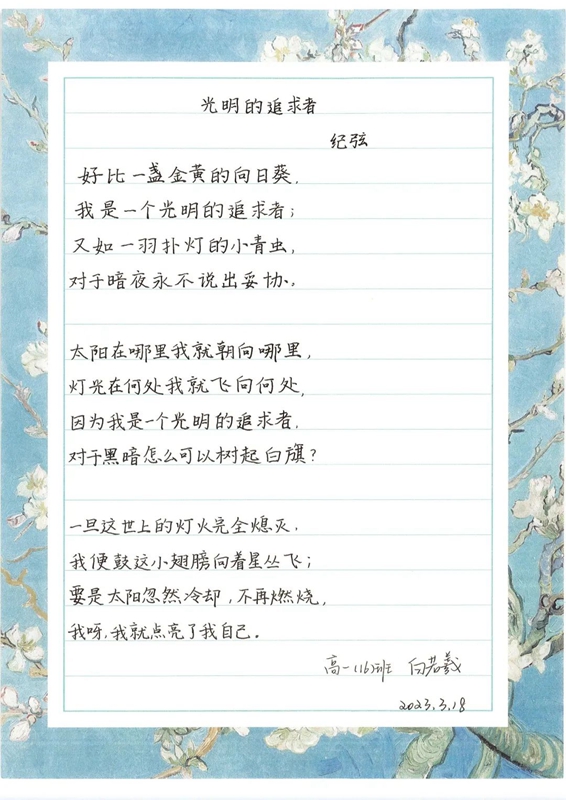 光明的追求者
纪弦
好比一盏金黄的向日葵，
我是一个光明的追求者；
又如一羽扑灯的小青虫，
对于暗夜永不说出妥协。
太阳在哪里我就朝向哪里，
灯光在何处我就飞向何处，
因为我是一个光明的追求者，
对于黑暗怎么可以树起白旗？
一旦这世上的灯火完全熄灭，
我便鼓这小翅膀向着星丛飞；
要是太阳忽然冷却，不再燃烧，
我呀，我就点亮了我自己。
高一(16)班 白若羲
2023.3.18